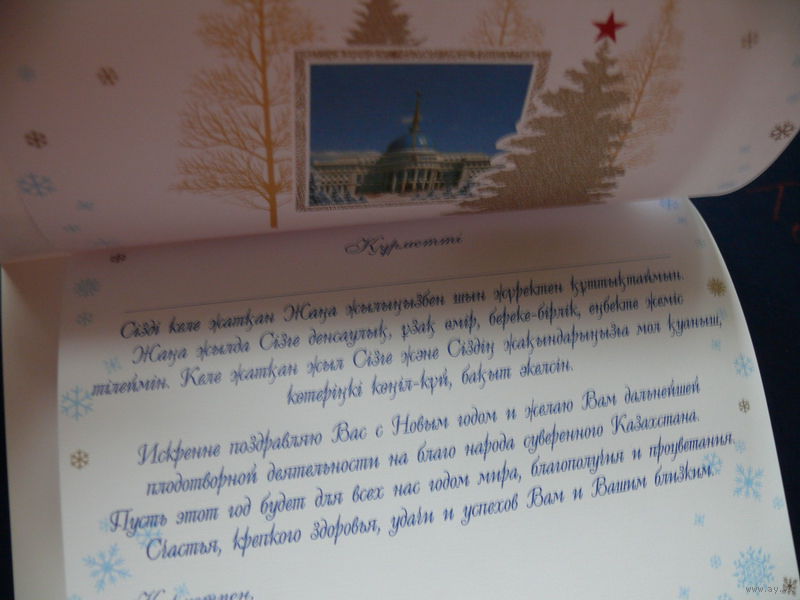 Құрметті
Сізді келе жатқан Жаңа жылыңызбен шын жүректен құттықтаймын.
Жаңа жылда Сізге денсаулық, ұзақ өмір, береке-бірлік, еңбекте жеміс
тілеймін. Келе жатқан жыл Сізге және Сіздің жақындарыңызға мол қуаныш,
көтеріңкі көңіл-күй, бақыт әкелсін.
Искренне поздравляю Вас с Новым годом и желаю Вам дальнейшей
плодотворной деятельности на благо народа суверенного Казахстана.
Пусть этот год будет для всех нас годом мира, благополучия и процветания.
Счастья, крепкого здоровья, удачи и успехов Вам и Вашим близким.
Құрметпен,